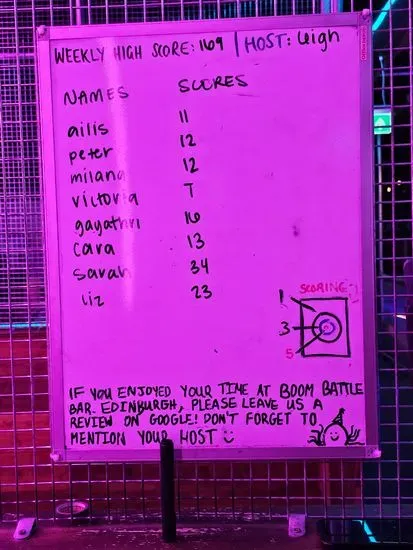 WEEKLY HIGH SCORE: 169 | HOST: Leigh
NAMES SCORES
ailis 11
peter 12
milana 12
victoria T
gayathri 16
cara 13
sarah 34
liz 23
SCORING
1
3
5
IF YOU ENJOYED YOUR TIME AT BOOM BATTLE
BAR EDINBURGH, PLEASE LEAVE US A
REVIEW ON GOOGLE! DON'T FORGET TO
MENTION YOUR HOST